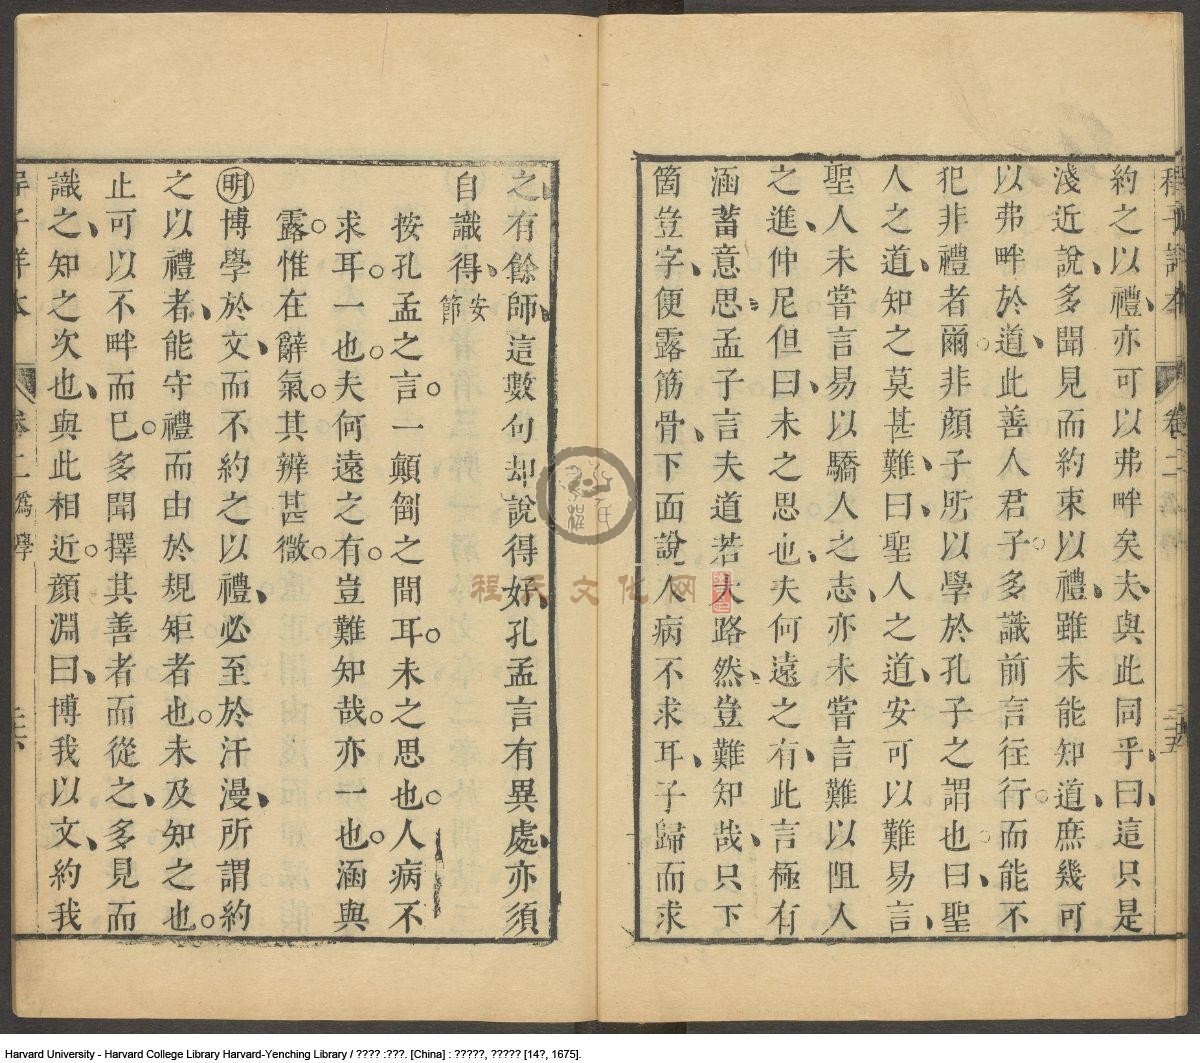 約之以禮亦可以弗畔矣夫與此同乎曰這只是
淺近說多聞見而約束以禮雖未能知道庶幾可
以弗畔於道此善人君子多識前言往行而能不
犯非禮者爾非顏子所以學於孔子之謂也曰聖
人之道知之莫甚難曰聖人之道安可以難易言
聖人未嘗言易以驕人之志亦未嘗言難以阻人
之進仲尼但曰未之思也夫何遠之有此言極有
涵蓄意思孟子言夫道若大路然豈難知哉只下
箇豈字便露筋骨下面說人病不求耳子歸而求
之有餘師這數句却說得好孔孟言有異處亦須
自識得安節
按孔孟之言一顛倒之間耳未之思也人病不
求耳一也夫何遠之有豈難知哉亦一也涵與
露惟在辭氣其辨甚微
明博學於文而不約之以禮必至於汗漫所謂約
之以禮者能守禮而由於規矩者也未及知之也
止可以不畔而已多聞擇其善者而從之多見而
識之知之次也與此相近顏淵曰博我以文約我
卷二 爲學
程氏文化网
Harvard University - Harvard College Library Harvard-Yenching Library / ???? :???. [China] : ?????, ????? [14?, 1675].